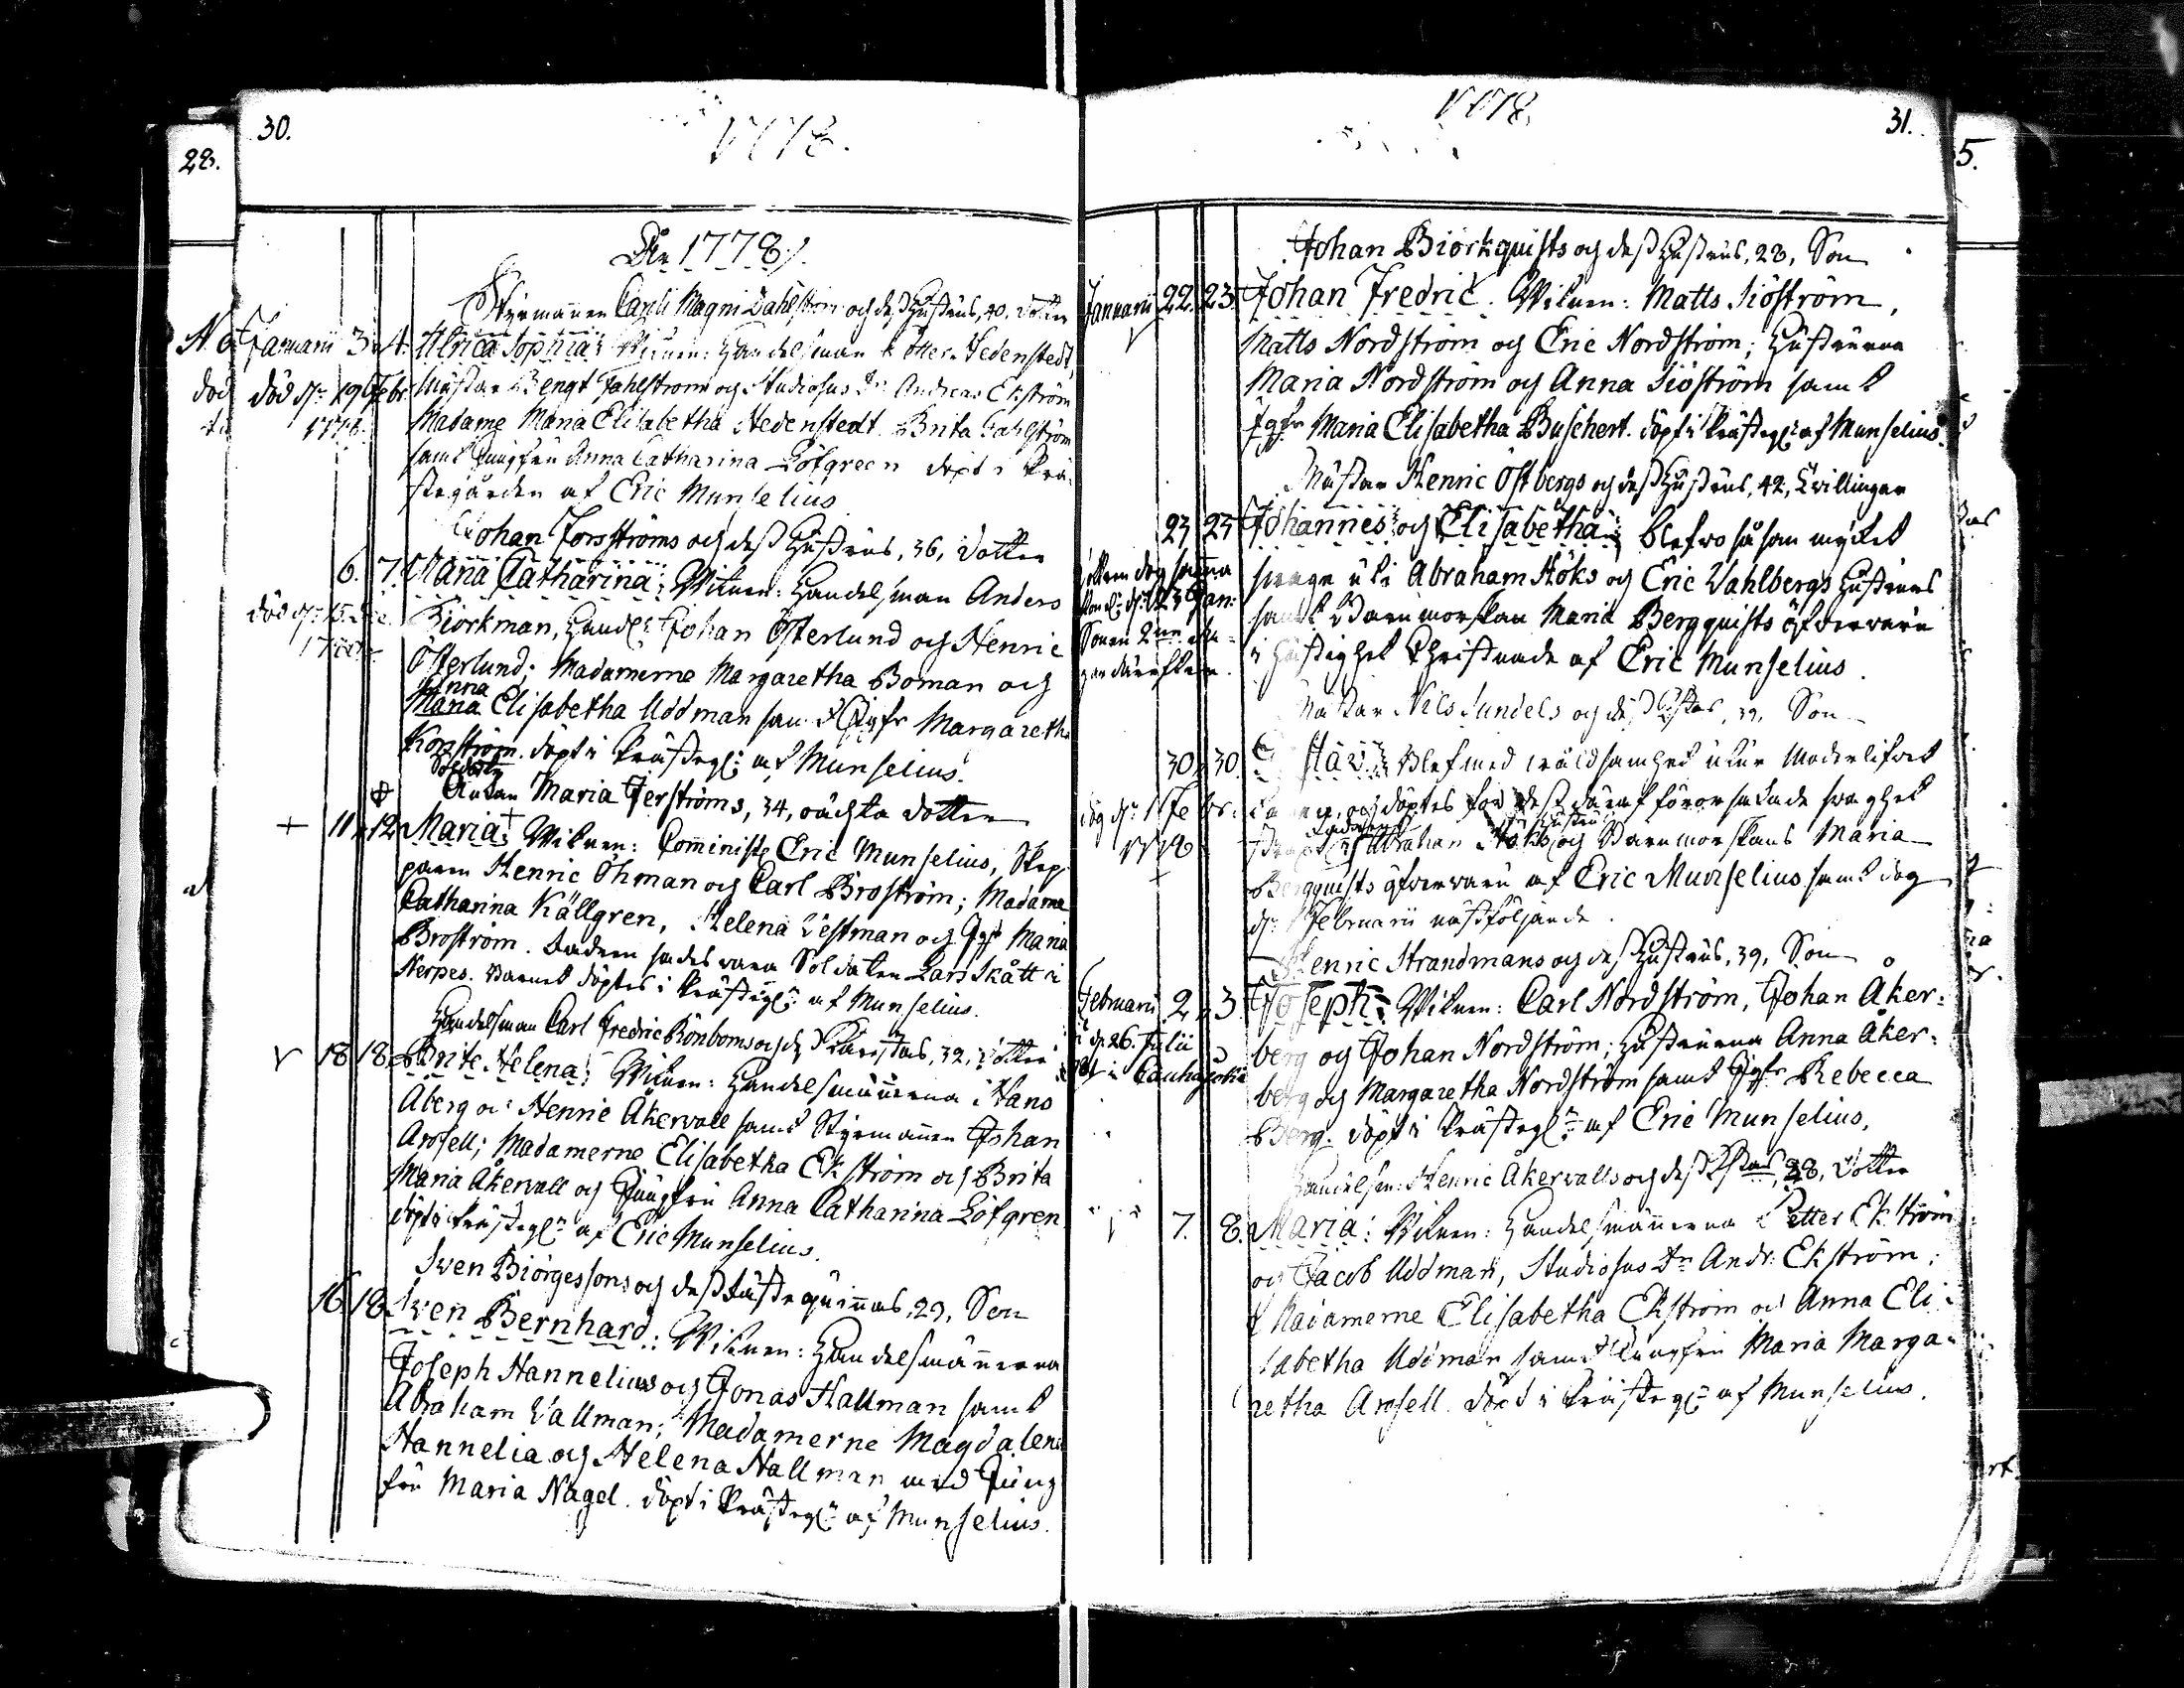 28.
30.
1778.
År 1778.
Styrmannen Carl Magni Dahlström och dess Hustrus, 40, dotter
Januarii 3. 4. Ulrica Sophia; Witnen: Handelsman Hedenstedt,
död d. 19 Febr. Mästar Bengt Fahlström och Studiosus Dn Andreas Ekström
1778. Madame Maria Elisabetha Hedenstedt, Brita Fahlström
samt Jungfru Anna Catharina Löfgreen döpt i Prä-
stegården af Eric Munselius
Johan Forsströms och dess Hustrus, 36, dotter
6. 7. Maria Catharina; Witnen: Handelsman Anders
död d. 15
Biörkman, Handl. Johan Österlund och Henric
Österlund; Madamerne Margaretha Boman och
Anna
Maria Elisabetha Uddman samt Jgfr Margaretha
Kopström. döpt i Prästeg. af Munselius.
Soldats
Enkan Maria Jerströms, 34, oächta dotter
+ 11. 12 Maria; Witnen: Comminist. Eric Munselius, Skep-
paren Henric Öhman och Carl Broström; Madame
Catharina Källgren, Helena Vestman och Jgfr Maria
Broström. Fadren sades vara Soldaten Lars Skått i
Nerpes. Barnet döptes i Prästeg. af Munselius.
Handelsman Carl Fredric Rönboms och dess Kärestas, 32, dotter
18 18. Brita Helena; Witnen: Handelsmännerna Hans
Åberg och Henric Åkervall samt Styrmannen Johan
Arosell; Madamerne Elisabetha Ekström och Brita
Maria Åkervall och Jungfru Anna Catharina Löfgren
döpt i Prästeg. af Eric Munselius.
Sven Biörgessons och dess Fästeqvinnas, 29, Son
16 18. Sven Bernhard; Witnen: Handelsmännerna
Joseph Hannelius och Jonas Hallman samt
Abraham Vallman; Madamerne Magdalena
Hannelia och Helena Hallman med Jung-
fru Maria Nagel. döpt i Prästeg. af Munselius.
1778.
31.
5.
Johan Biörkquists och dess Hustrus, 28, Son
Januarii 22. 23. Johan Fredric. Witnen: Matts Siöström,
Matts Nordström och Eric Nordström; Hustrurna
Maria Nordström och Anna Siöström samt
Jgfr Maria Elisabetha Buschert. döpt i Prästeg. af Munselius.
Mästar Henric Östbergs och dess Hustrus, 42, Tvillingar
23 23 Johannes och Elisabetha; blefvo såsom mycket
dottren dog samma
svage uti Abraham Höks och Eric Vahlbergs Hustrurs
d. 23 Jan:
samt Barnmorskan Maria Bergquists öfvervaru
Sonen
i hastighet Christnade af Eric Munselius.
därefter.
Mästar Nils Sundels och dess Kärestas, 39, Son
30. 30 blef med våldsamhet utur Moderlifvet
dog d. 1 Febr. tagen, och döptes för dess däraf förorsakade svaghet
1778
Abraham Höks Hustru och Barnmorskans Maria
Bergquists öfvervaru af Eric Munselius samt dog
d. 1 Februarii nästföljande.
Henric Strandmans och dess Hustrus, 39, Son
Februarii 2. 3. Joseph; Witnen: Carl Nordström, Johan Åker-
d. 26. Julii
berg och Johan Nordström; Hustrurna Anna Åker-
berg och Margaretha Nordström samt Jgfr Rebecca
Berg. döpt i Prästeg. af Eric Munselius.
Handelsm. Henric Åkervalls och dess Kärestas, 28, dotter
7. 8. Maria; Witnen: Handelsmännerna Petter Ekström
och Jacob Uddman, Studiosus Dn Andr. Ekström;
Madamerne Elisabetha Ekström och Anna Eli-
sabetha Uddman samt Jungfru Maria Marga-
retha Arosell. döpt i Prästeg. af Munselius.